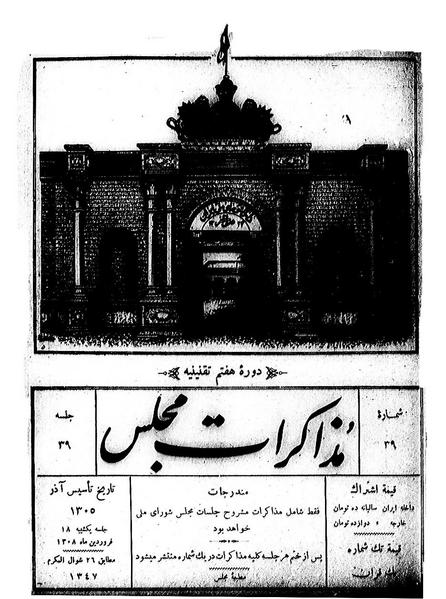 دورهٔ هفتم تقنینیه
شمارهٔ
۳۹
مذاکرات مجلس
جلسه
۳۹
قیمة اشتراك
داخله ایران سالیانه ده تومان
خارجه » دوازده تومان
قیمة تك شماره
یك قران
مندرجات
فقط شامل مذاکرات مشروح جلسات مجلس شورای ملی
خواهد بود
پس از ختم هر جلسه کلیه مذاکرات در یك شماره منتشر میشود
مطبعهٔ مجلس
تاریخ تأسیس آذر
۱۳۰۵
جلسه یکشنبه ۱۸
فروردین ماه ۱۳۰۸
مطابق ۲۶ شوال المکرم
۱۳۴۷